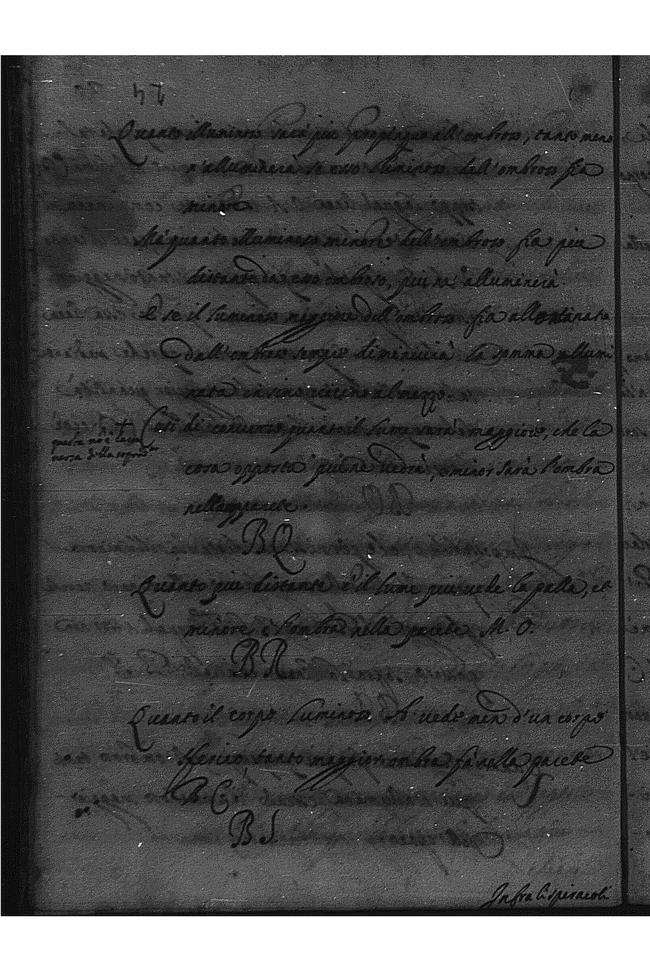 Quanto illuminoso sarà piu propinquo all'ombroso, tanto meno
n'alluminerà se esso luminoso dell'ombroso fia
minore
Ma quanto illuminoso minore dell'ombroso fia piu
distante da esso ombroso, piu ne alluminerà.
E se il luminoso maggiore dell'ombroso fia allontanato
dall'ombroso sempre diminuirà la somma allumi
nata insino vicino al mezzo.
Cosi di converso quanto il lume sarà maggiore, che la
questa no è la con
versa della sopra
cosa opposta piu ne vedrà, e minor sarà l'ombra
nella parete.
BQ
Quanto piu distante è il lume piu vede la palla, et
minore è l'ombra nella parete M. O.
BR
Quanto il corpo luminoso A vede men d'un corpo
sferico tanto maggior ombra fà nella parete
B C.
BS
Infra li spiracoli